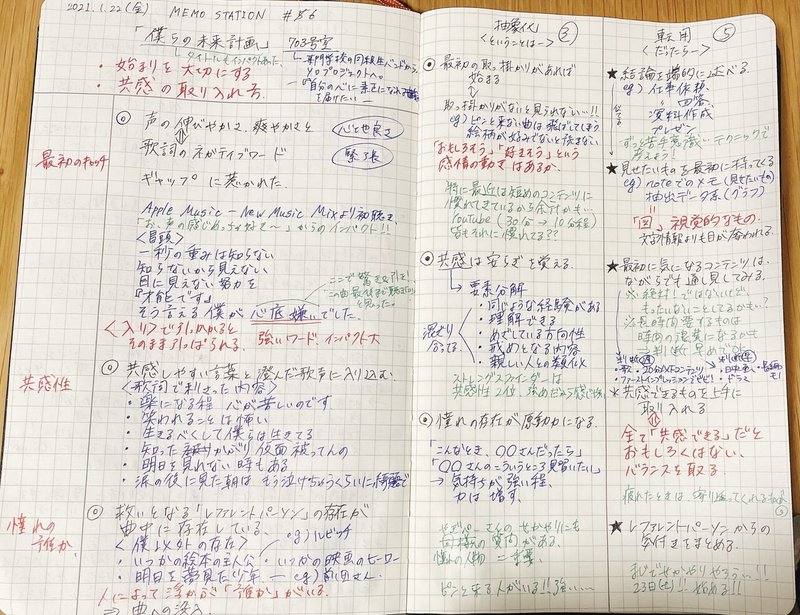 2021.1.22(金) MEMO STATION #56
「僕らの未来計画」 703号室
→タイトルもインパクトあった
専門学校の同級生バンドから
ソロプロジェクトへ。
「自分の心に素直になれる
を届けたい―
・始まりを大切にする
・共感の取り入れ方
最初のキャッチ
◎ 声の伸びやかさ、爽やかさと
歌詞のネガティブワード
心と地良さ
緊張
ギャップに惹かれた。
Apple Music - New Music Mixより初聴き
「お、声の感じめっちゃ好き〜」からのインパクト!!
<冒頭>
一秒の重みは知らない
知らないから見えない
目に見えない努力を
『才能です』
そう言える僕が心底嫌いでした。
ここで驚き&引き!
この曲最後まで聴こう
と思った。
<入り>で引っかかると
そのまま引っぱられる。
強いワード、インパクト大
共感性
◎ 共感しやすい言葉と澄んだ歌声に入り込む
<歌詞で刺さった内容>
・楽になる程 心が苦しいのです
・笑われることは怖い
・生きるべくして僕らは生きてる
・知ったかぶり 仮面被ってんの
・明日を見れない時もある
・涙の後に見た朝は もう泣けちゃうくらいに綺麗で
憧れの
誰か
◎ 救いとなる「レファレントパーソン」の存在が
曲中に存在している。
<僕以外の存在>
eg) ルビッチ
・いつかの絵本の主人公 ・いつかの映画のヒーロー
・明日を夢見た少年 ― eg) 前田さん
人によって浮かぶ「誰か」がいる。
⇒ 曲への没入
抽象化 ③
<ということは→>
◎ 最初の取っ掛かりがあれば
始まる
取っ掛かりがないと見られない…!!
eg) ピンと来ない曲は飛ばしてしまう
絵柄が好みでないと読まない
「おもしろそう」「好きそう」という
感情の動きはあるか。
特に最近は短めのコンテンツに
慣れてきているから余計かも…
YouTube (30分→10分程)
皆もそれに慣れてる??
◎ 共感は安らぎを覚える
→要素分解
混ざり
合ってる
・同じような経験がある
・理解できる
・めざしている方向性
・戒めとなる内容
・親しい人との類似
ストレングスファインダーは
共感性2位、強めだから感じやすい
◎ 憧れの存在が原動力になる。
「こんなとき、〇〇さんだったら」
「〇〇さんのこういうところ見習いたい」
→ 気持ちが強い程、
力は増す。
憧れの人物＝重要
ピンと来る人がいる!!強い…
転用 ⑤
<だったら→>
★ 結論を端的に述べる。
eg) 仕事依頼
〃 回答
資料作成
プレゼン
ずっと苦手意識…テクニックで
★ 見せたいものを最初に持ってくる
eg) noteでのメモ(見せたいもの)
抽出データ系(グラフ)
「図」視覚的なもの。
文字情報よりも目が奪われる。
★最初に気になるコンテンツは、
ながらでも通し見してみる。
※絶対!ではないけど
もったいないことしてるかも…?
※長時間要するものは
時間の浪費になるかも
→ 判断早めで
★共感できるものを上手に
取り入れる
全て「共感できる」だと
おもしろくはない。
バランスを取る
★ レファレントパーソンからの
気付きをまとめる。
まじでせかやりやろう…!!
23日(土)!!始める!!